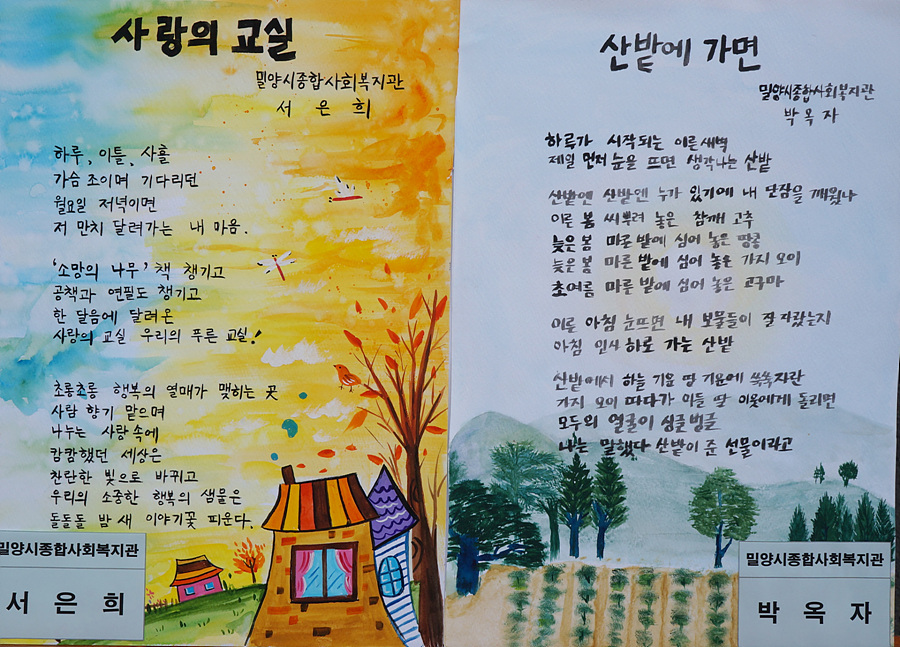 사랑의 교실
밀양시종합사회복지관
서 은 희
하루, 이틀, 사흘
가슴 조이며 기다리던
월요일 저녁이면
저 만치 달려가는 내 마음.
'소망의 나무' 책 챙기고
공책과 연필도 챙기고
한 달음에 달려온
사랑의 교실 우리의 푸른 교실!
초롱초롱 행복의 열매가 맺히는 곳
사람 향기 맡으며
나누는 사랑속에
캄캄했던 세상은
찬란한 빛으로 바뀌고
우리의 소중한 행복의 샘물은
돌돌돌 밤 새 이야기꽃 피운다.
밀양시종합사회복지관
서 은 희
산밭에 가면
밀양시종합사회복지관
박 옥 자
하루가 시작되는 이른 새벽
제일 먼저 눈을 뜨면 생각나는 산밭
산밭엔 산밭엔 누가 있기에 내 단잠을 깨웠나
이른 봄 씨뿌려 놓은 참깨 고추
늦은 봄 마른 밭에 심어 놓은 땅콩
늦은 봄 마른 밭에 심어 놓은 가지 오이
초여름 마른 밭에 심어 놓은 고구마
이른 아침 눈뜨면 내 보물들이 잘 자랐는지
아침 인사 하로 가는 산밭
산밭에서 하늘 기운 땅 기운에 쑥쑥자란
가지 오이 따다가 아들 딸 이웃에게 돌리면
모두의 얼굴이 싱글 벙글
나는 말했다 산밭이 준 선물이라고
밀양시종합사회복지관
박 옥 자